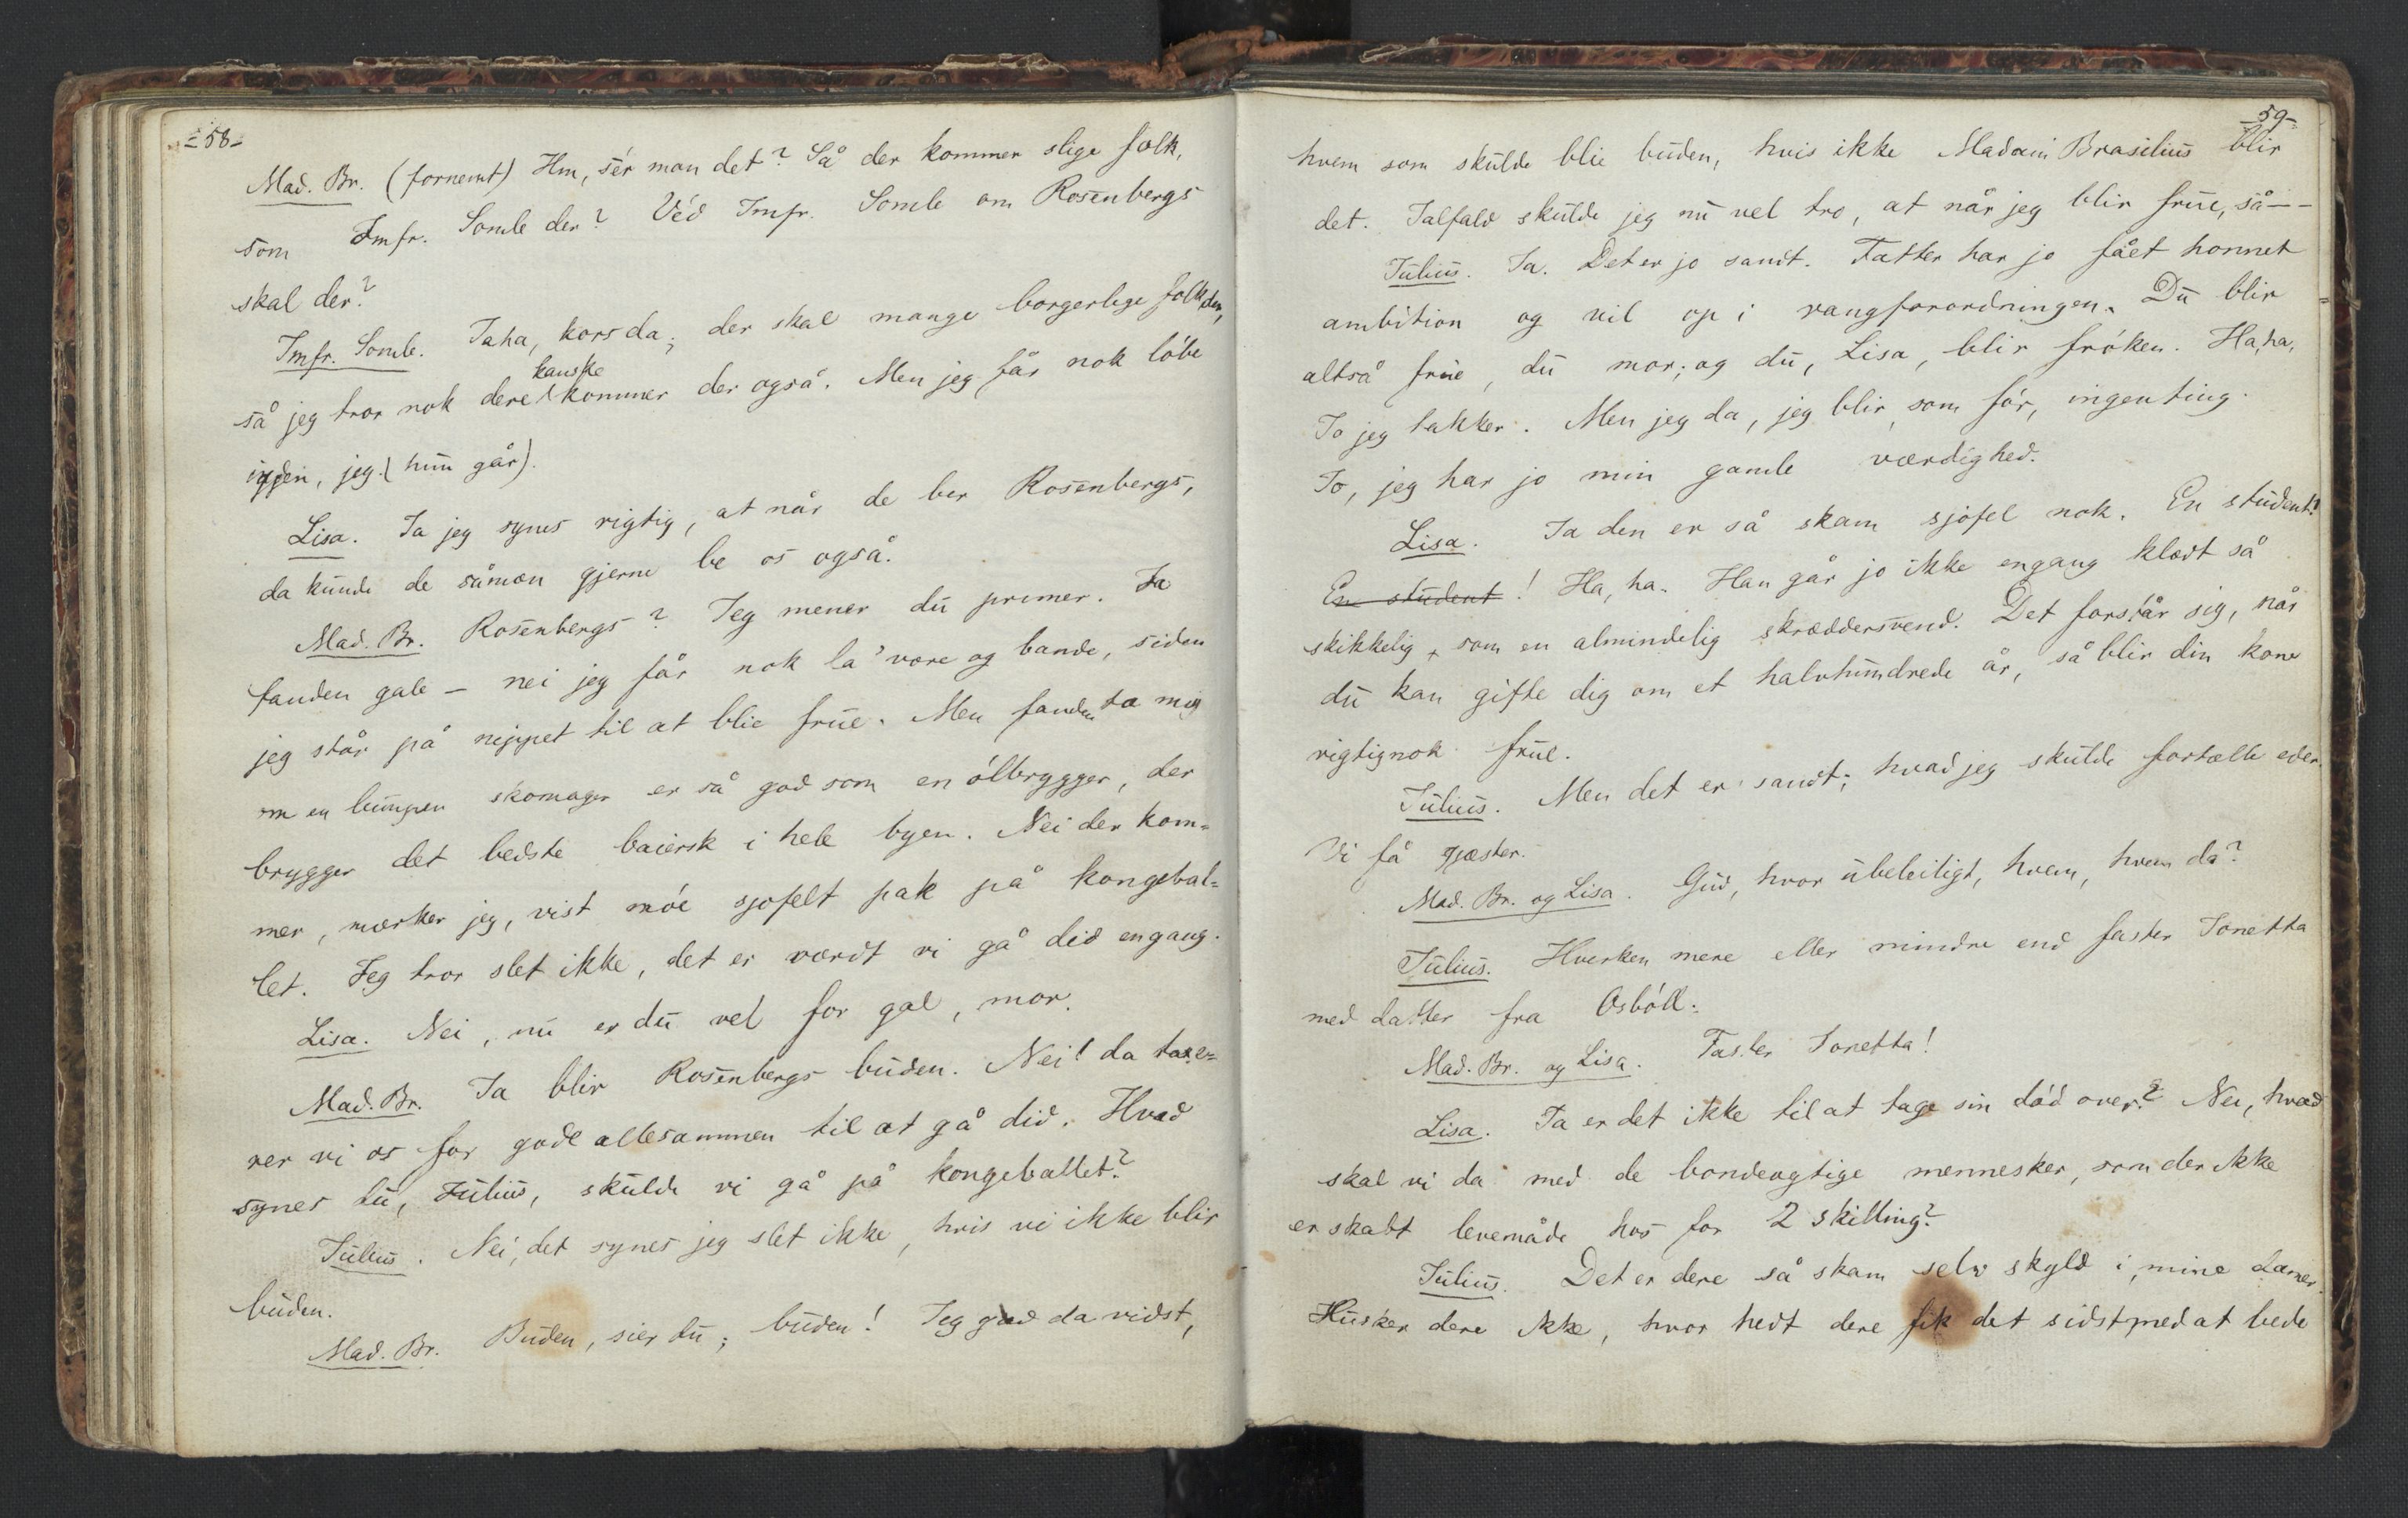 -58-
Mad. Br. (fornemt) Hm, sér man det? Så der kommer slige folk,
som Jmfr. Somle der? Véd Jmfr. Somle om Rosenbergs
skal der?
Jmfr. Somle. Jaha, kors da; der skal mange borgerlige folk der,
kanske
så jeg tror nok dere kommer der også. Men jeg får nok löbe
igjen, jeg. (hun går).
Lisa. Ja jeg synes rigtig, at når de ber Rosenbergs,
da kunde de såmæn gjerne be os også.
Mad. Br. Rosenbergs? Jeg mener du primer. Ja
fanden gale – nei jeg får nok la' være og bande, siden
jeg står på nippet til at blie frue. Men fanden ta mig
om en lumpen skomager er så god som en ölbrygger, der
brygger det bedste baiersk i hele byen. Nei der kom=
mer, mærker jeg, vist móe sjofelt pak på kongebal=
let. Jeg tror slet ikke, det er værdt vi gå did engang.
Lisa. Nei, nu er du vel for gal, mor.
Mad. Br. Ja blir Rosenbergs buden. Nei! da taxe=
rer vi os for gode allesammen til at gå did. Hvad
synes du, Julius, skulde vi gå på kongeballet?
Julius. Nei, det synes jeg slet ikke, hvis vi ikke blir
buden.
Mad. Br. Buden, sier du; buden! Jeg gad da vidst,
-59-
hvem som skulde blie buden, hvis ikke Madam Brasilius blir
det. Ialfald skulde jeg nu vel tro, at når jeg blir frue, så – –
Julius. Ja. Det er jo sandt. Fatter har jo fået honnet
ambition og vil op i rangforordningen. Du blir
altså frue, du mor; og du, Lisa, blir fröken. Ha, ha,
Jo jeg takker. Men jeg da, jeg blir som för, ingenting.
Jo, jeg har jo min gamle værdighed.
Lisa. Ja den er så skam sjofel nok. En student!
En student! Ha, ha. Han går jo ikke engang klædt så
skikkelig, som en almindelig skræddersvend. Det forstår sig, når
du kan gifte dig om et halvhundrede år, så blir din kone
rigtignok frue.
Julius. Men det er sandt; hvad jeg skulde fortælle eder.
Vi få gjæster.
Mad. Br. og Lisa. Gud, hvor ubeleiligt, hvem, hvem da?
Julius. Hverken mere eller mindre end faster Tonetta
med datter fra Osböll.
Mad. Br. og Lisa. Faster Tonetta!
Lisa. Ja er det ikke til at tage sin död over? Nei, hvad
skal vi da med de bondeagtige mennesker, som der ikke
er skabt levemåde hos for 2 skilling?
Julius. Det er dere så skam selv skyld i, mine damer.
Husker dere ikke, hvor hedt dere fik det sidst med at bede